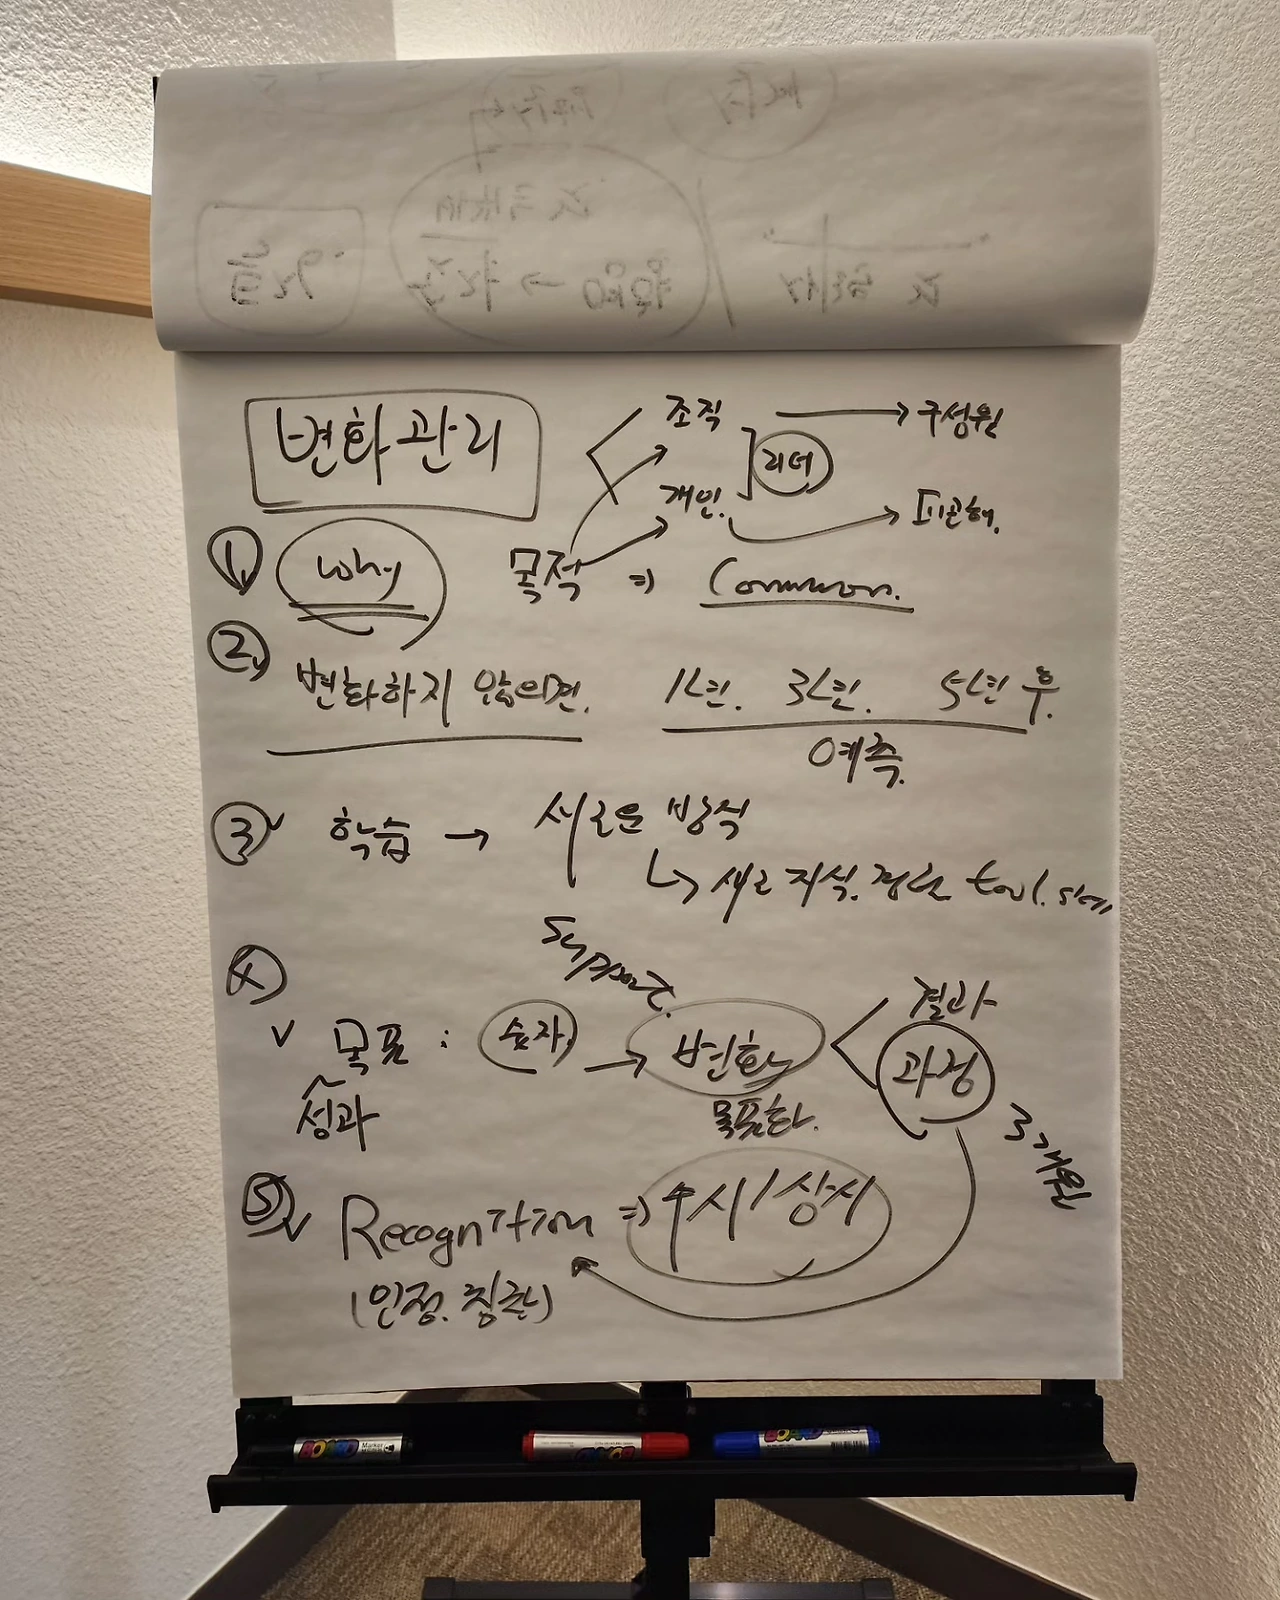 변화관리
조직 → 구성원
리더
개인.
① Why 목적 ⇒ Common.
② 변화하지 않으면. 1년. 3년. 5년 후.
예측.
③ 학습 → 새로운 방식
↳ 새로 지식. 경험 tool.
support.
④ 결과
목표 : 숫자 → 변화 과정
성과 목표화. 3개월
⑤ Recognition ⇒ 수시/상시
(인정. 칭찬)
BOARD Marker
BOARD
BOARD